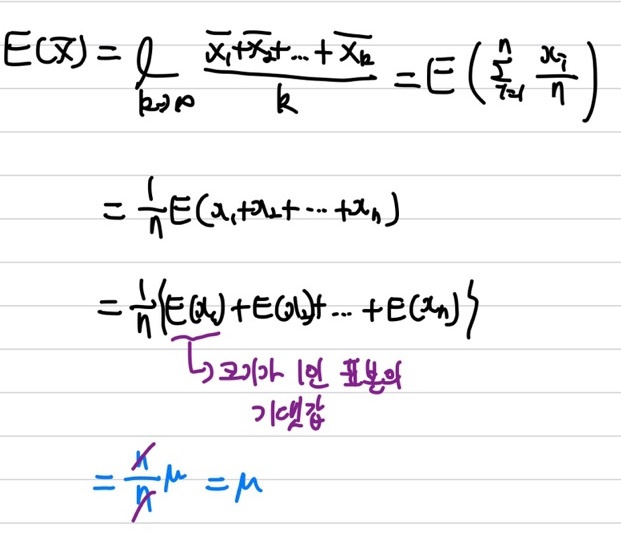 E(x̄) = lim k→∞ (x̄₁+x̄₂+...+x̄ₖ)/k = E(∑ᵢ₌₁ⁿ xᵢ/n)
= 1/n E(x₁+x₂+...+xₙ)
= 1/n {E(x₁)+E(x₂)+...+E(xₙ)}
↳ 크기가 1인 표본의
기댓값
= n/n μ = μ